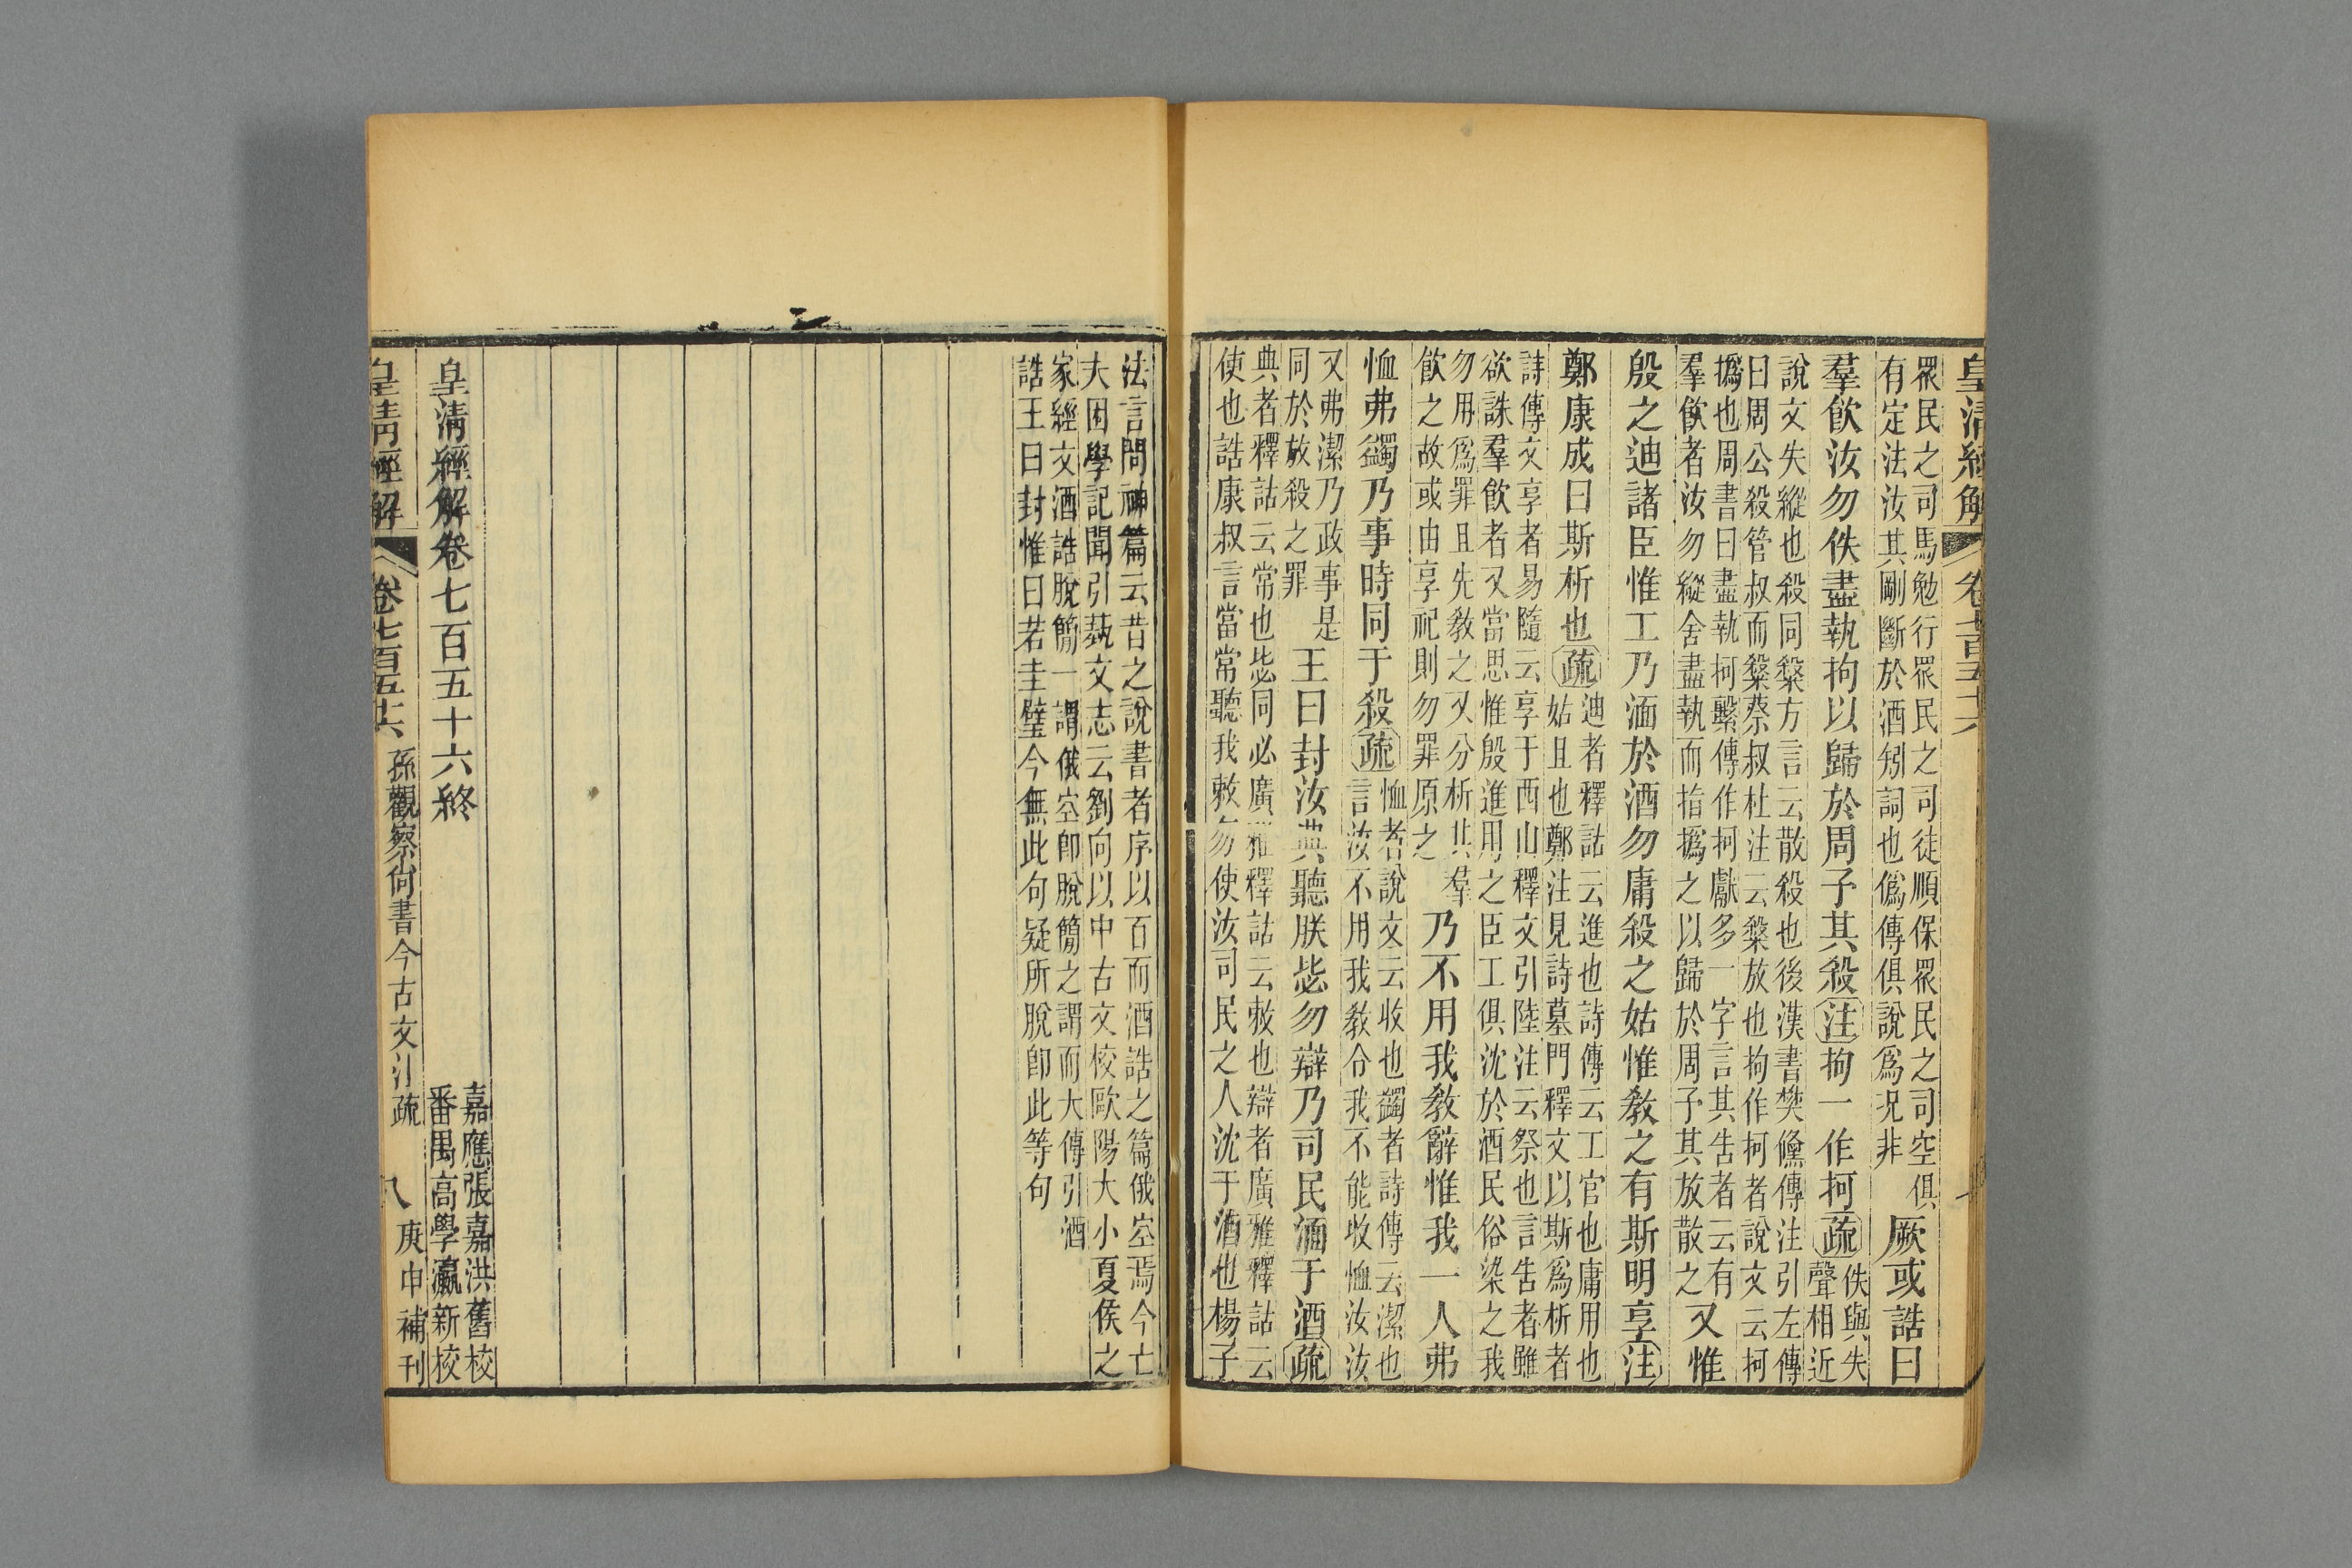 皇清經解 卷七百五十六
眾民之司馬勉行眾民之司徒順保眾民之司空俱
有定法汝其剛斷於酒矧詞也僞傳俱說爲況非
厥或誥曰
羣飲汝勿佚盡執拘以歸於周予其殺注拘一作柯疏
佚與失
聲相近
說文失縱也殺同𥻦方言云散殺也後漢書樊儵傳注引左傳
曰周公殺管叔而𥻦蔡叔杜注云𥻦放也拘作柯者說文云柯
撝也周書曰盡執柯繫傳作柯獻多一字言其告者云有
羣飲者汝勿縱舍盡執而指撝之以歸於周予其放散之
又惟
殷之迪諸臣惟工乃湎於酒勿庸殺之姑惟教之有斯明享注
鄭康成曰斯析也疏
迪者釋詁云進也詩傳云工官也庸用也
姑且也鄭注見詩墓門釋文以斯爲析者
詩傳文享者易隨云享于西山釋文引陸注云祭也言告者雖
欲誅羣飲者又當思惟殷進用之臣工俱沈於酒民俗染之我
勿用爲罪且先教之又分析其羣
飲之故或由享祀則勿罪原之
乃不用我教辭惟我一人弗
恤弗蠲乃事時同于殺疏
恤者說文云收也蠲者詩傳云潔也
言汝不用我教令我不能收恤汝汝
又弗潔乃政事是
同於放殺之罪
王曰封汝典聽朕毖勿辯乃司民湎于酒疏
典者釋詁云常也毖同必廣雅釋詁云敕也辯者廣雅釋詁云
使也誥康叔言當常聽我敕勿使汝司民之人沈于酒也楊子
法言問神篇云昔之說書者序以百而酒誥之篇俄空焉今亡
夫困學記聞引蓺文志云劉向以中古文校歐陽大小夏侯之
家經文酒誥脫簡一謂俄空卽脫簡之謂而大傳引酒
誥王曰封惟曰若圭璧今無此句疑所脫卽此等句
皇清經解卷七百五十六終
嘉應張嘉洪舊校
番禺高學瀛新校
皇清經解 卷七百五十六 孫觀察尙書今古文注疏 八 庚申補刊